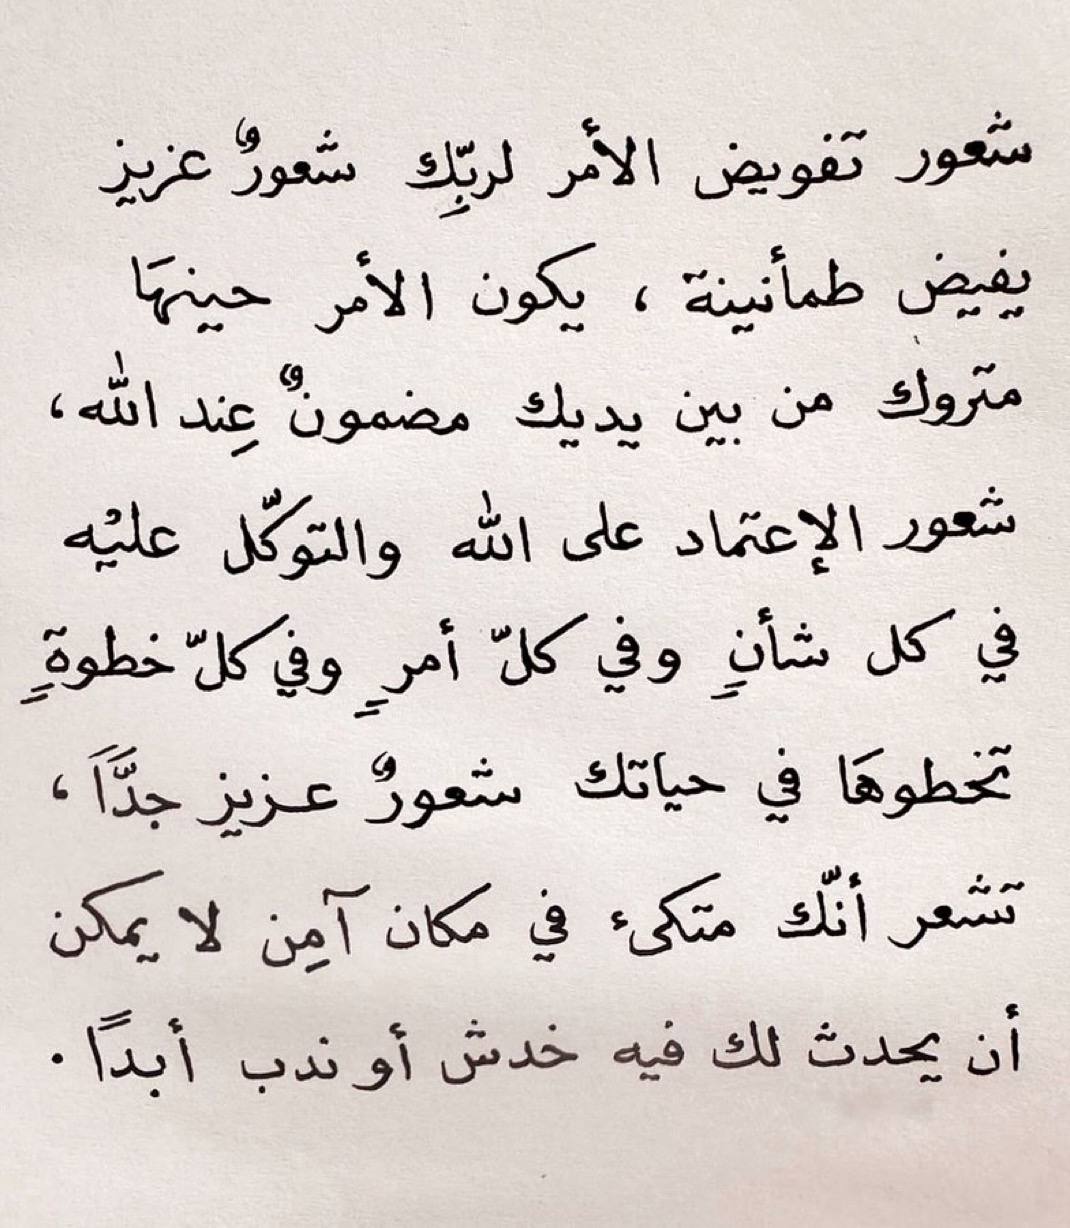 شعور تفويض الأمر لربِّك شعورٌ عزيز
يفيض طمأنينة ، يكون الأمر حينهَا
متروك من بين يديك مضمونٌ عِند الله ،
شعور الإعتماد على الله والتوكّل عليْه
في كل شأنٍ وفي كلّ أمرٍ وفي كلّ خطوةٍ
تخطوهَا في حياتك شعورٌ عزيز جدًّاَ ،
تشعر أنّك متكىء في مكان آمِن لا يمكن
أن يحدث لك فيه خدش أو ندب أبدًا .